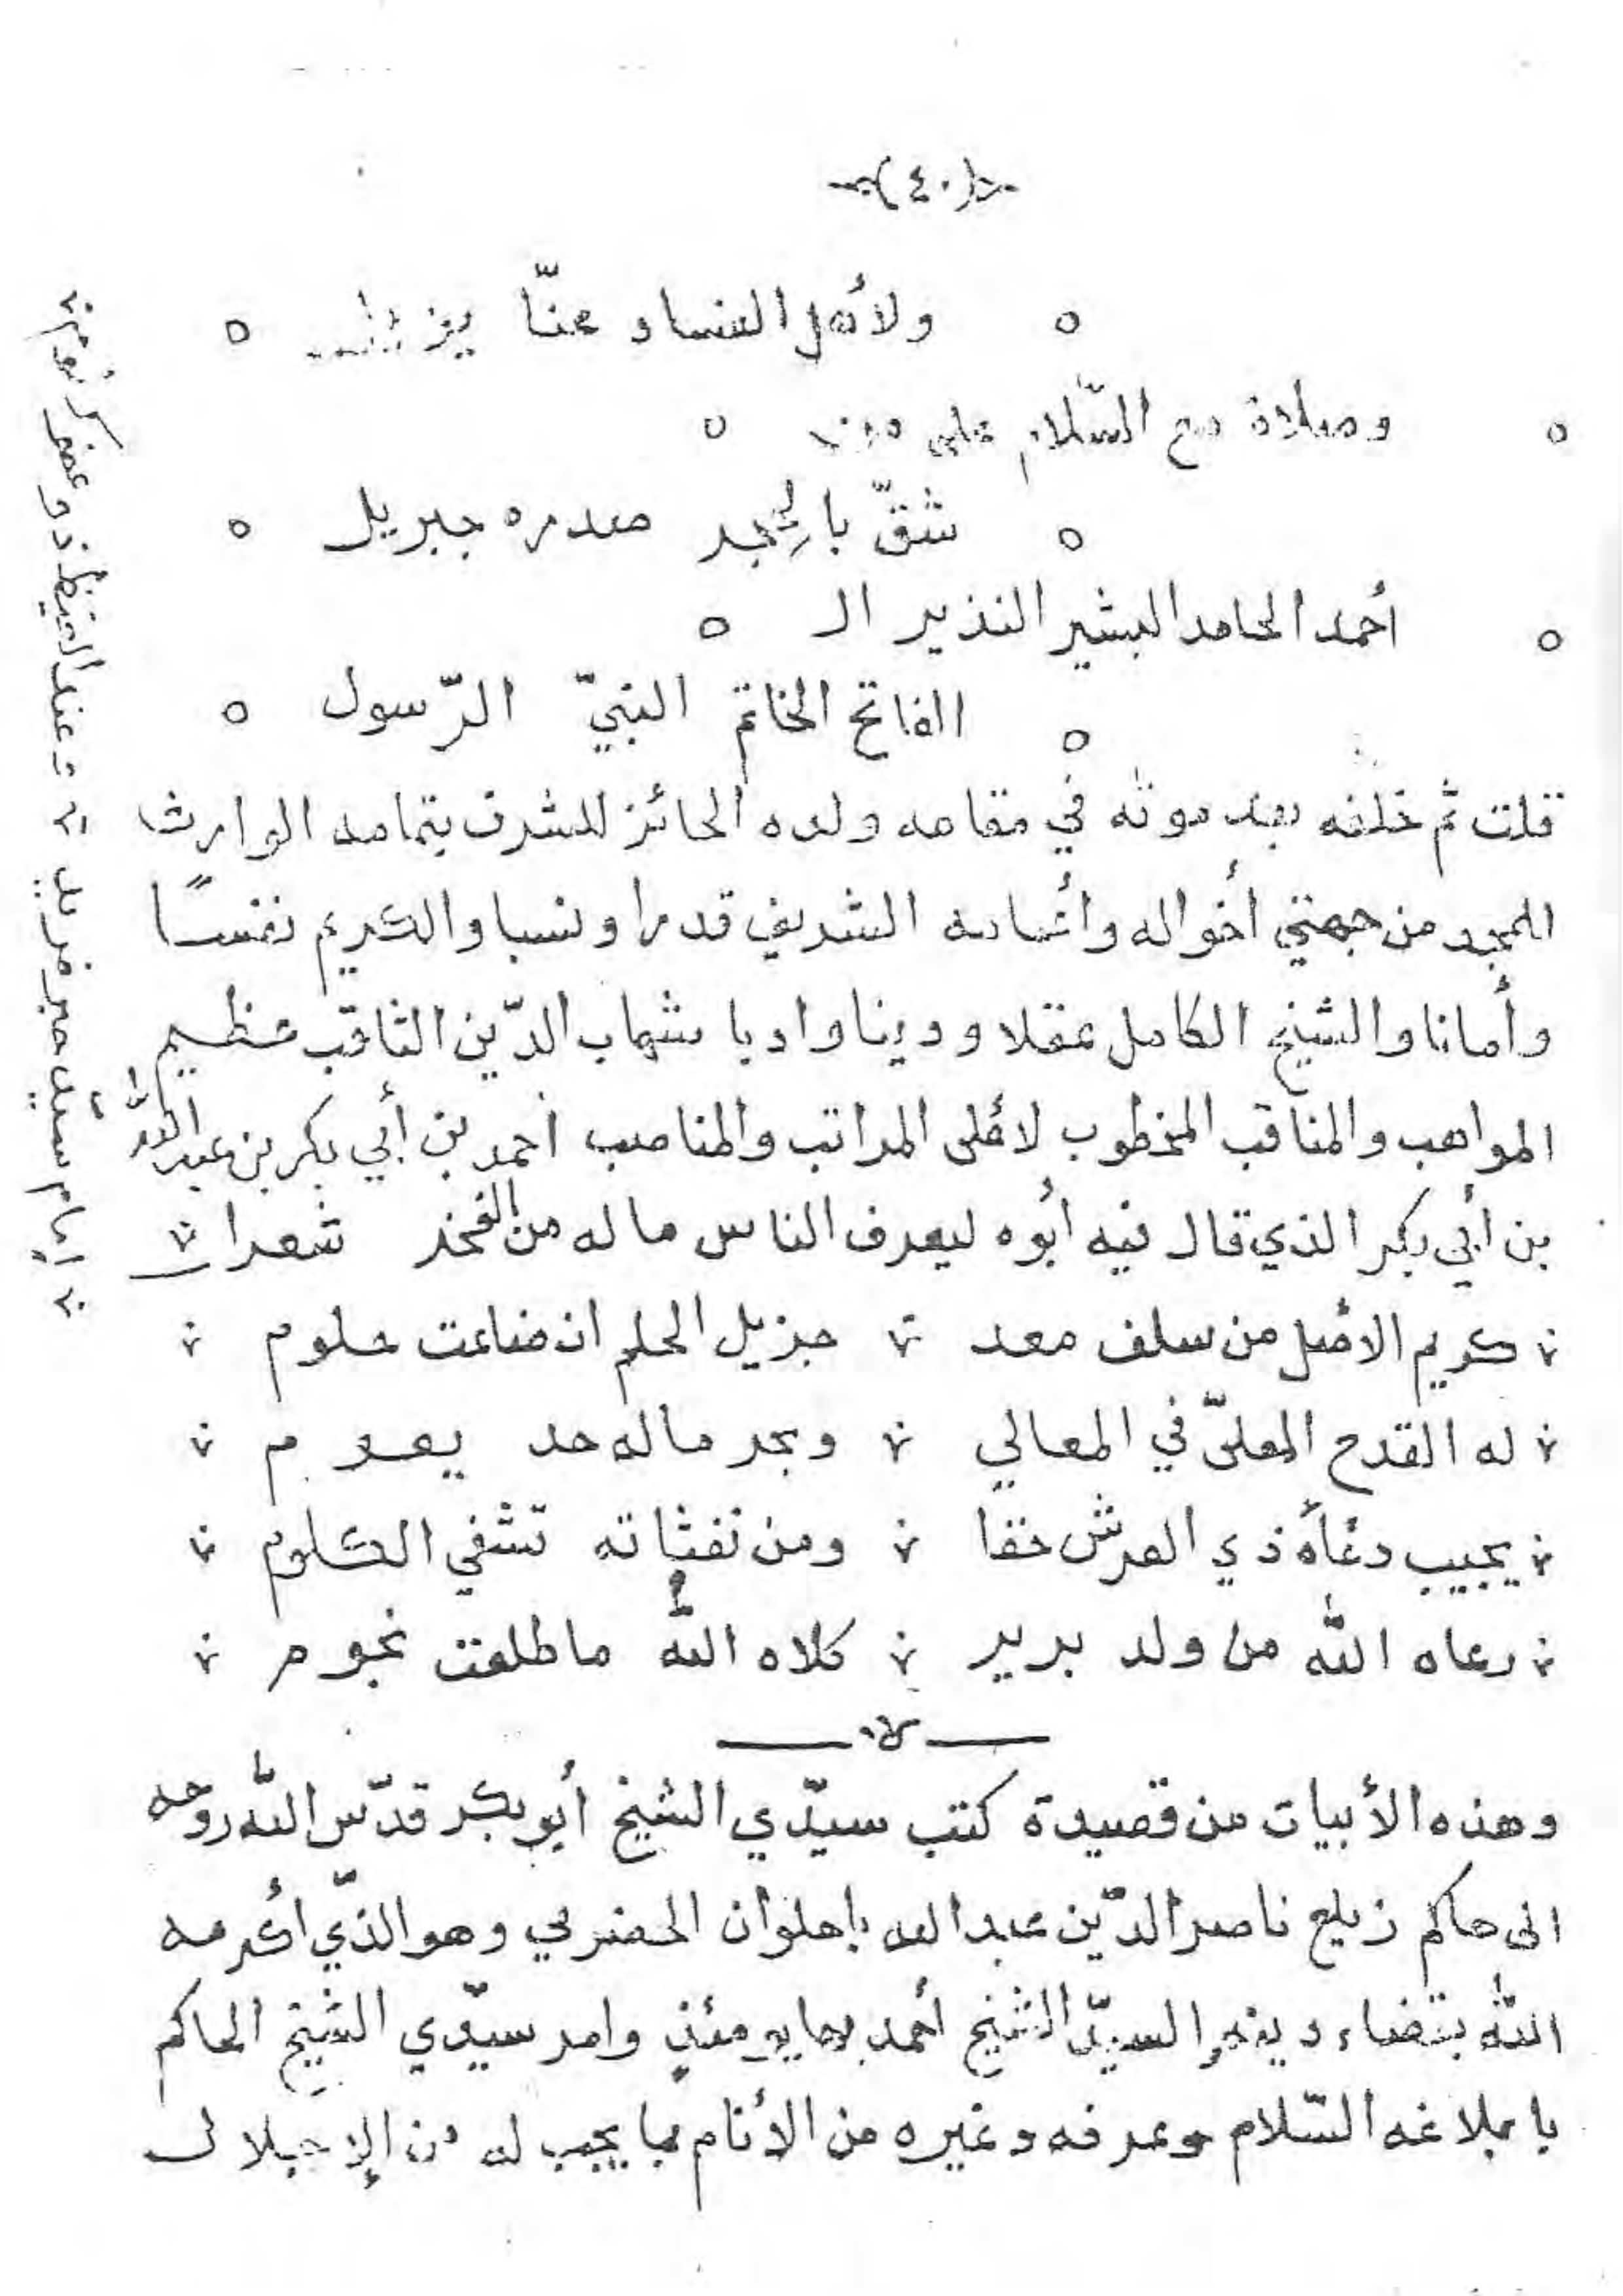 (٤٠)
ولأهل الفساد عنّا يز
وصلاة مع السّلام على من
شقّ بالمجد صدره جبريل
أحمد الحامد البشير النذير ال
الفاتح الخاتم النبيّ الرّسول
قلت ثم خلفه بعد موته في مقامه ولده الحائز للشرف بتمامه الوارث
للمجد من جهتي أخواله وأعمامه الشريف قدرا ونسبا والكريم نفسًا
وأمانا والشيخ الكامل عقلا ودينا وادبا شهاب الدّين الثاقب عظيم
المواهب والمناقب المخطوب لأعلى المراتب والمناصب احمد بن أبي بكر بن عبد الله
بن أبي بكر الذي قال فيه ابُوه ليعرف الناس ما له من الفخر شعرا
كريم الاصل من سلف معد جزيل الحلم ان ضاعت حلوم
له القدح المعلىّ في المعالي وبحر ماله حد يعوم
يجيب دعاه ذي العرش حقا ومن نفثاته تشفي الكلوم
رعاه الله من ولد برير كلاه الله ما طلعت نجوم
وهذه الأبيات من قصيدة كتب سيّدي الشيخ أبو بكر قدّس الله روحه
الى حاكم زيلع ناصر الدّين عبد الله باحلوان الحضرمي وهو الذّي أكرمه
الله بقضاء دينه السيّد الشيخ أحمد مئذٍ وامر سيّدي الشيخ الحاكم
بابلاغه السّلام وعرفه وغيره من الأنام بما يجب له من الإجلال
إمام سيّد حبر فريد وعند الغيظ ذو عفو كرُوم